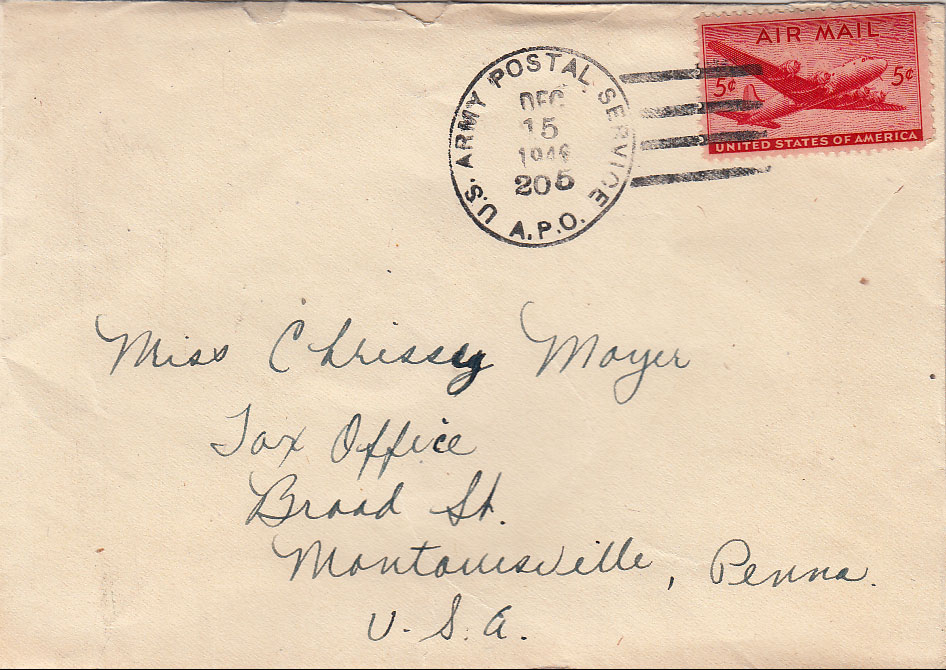 U.S. ARMY POSTAL SERVICE
A.P.O.
DEC
15
1946
205
AIR MAIL
5¢ 5¢
UNITED STATES OF AMERICA
Miss Chrissy Moyer
Tax Office
Broad St.
Montouisville, Penna.
U.S.A.